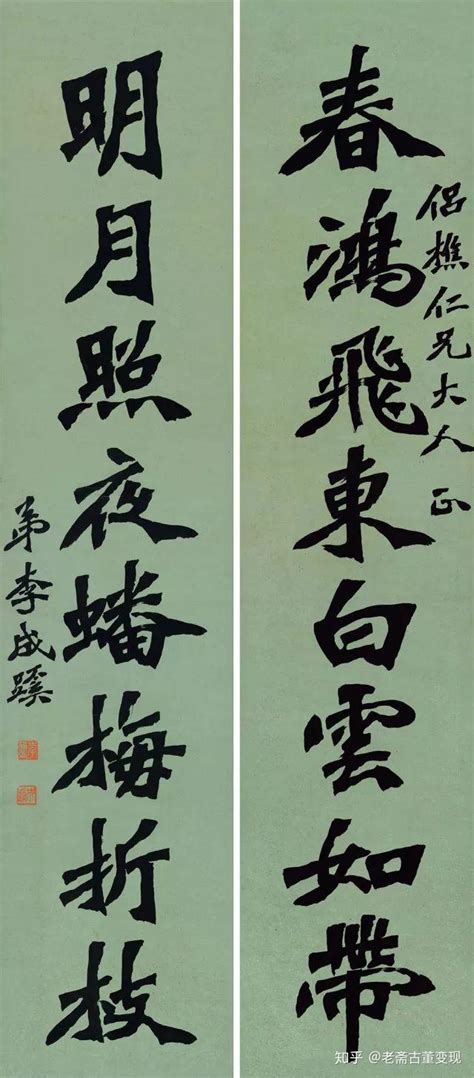 春鴻飛東白雲如帶
侶樵仁兄大人 正
明月照夜蟠梅折枝
弟李成蹊
知乎 @老斋古董变现